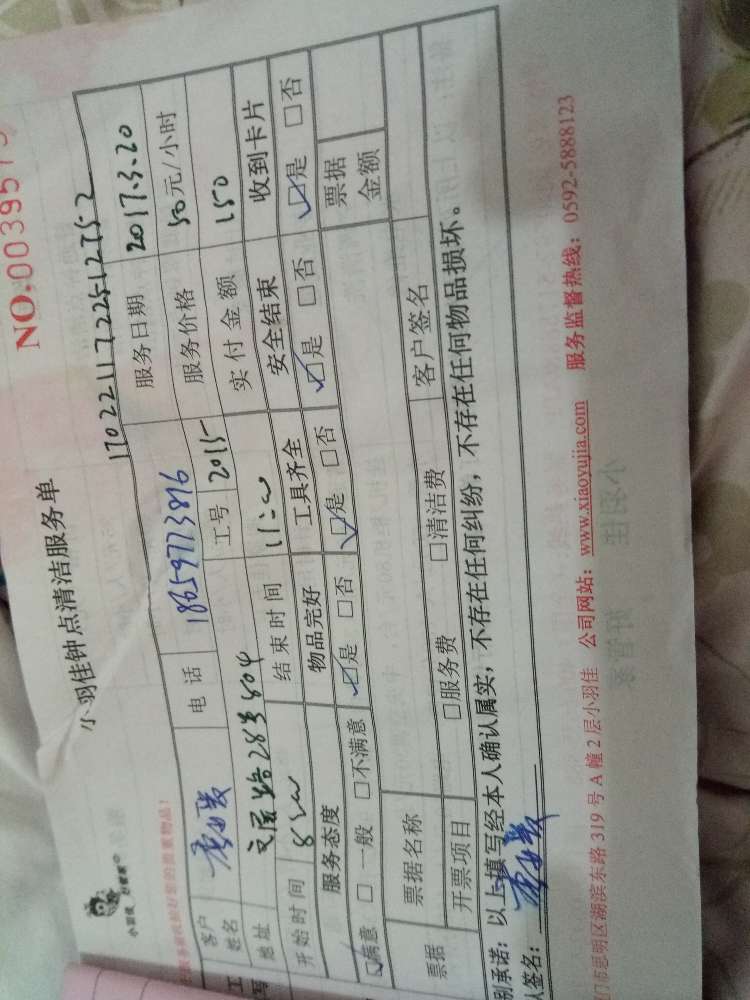 NO.003951
小羽佳钟点清洁服务单
小羽佳
17022117225121752
客户姓名 电话 18659773816 服务日期 2017.3.20
地址 工号 2015 服务价格 50元/小时
开始时间 结束时间 实付金额 150
服务态度 物品完好 工具齐全 安全结束 收到卡片
☑满意 □一般 □不满意 ☑是 □否 ☑是 □否 ☑是 □否 ☑是 □否
票据 票据名称 票据金额
开票项目 □服务费 □清洁费 客户签名
别承诺：以上填写经本人确认属实，不存在任何纠纷，不存在任何物品损坏。
人签名：
门市思明区湖滨东路 319 号 A 幢 2 层小羽佳 公司网站：www.xiaoyujia.com 服务监督热线：0592-5888123